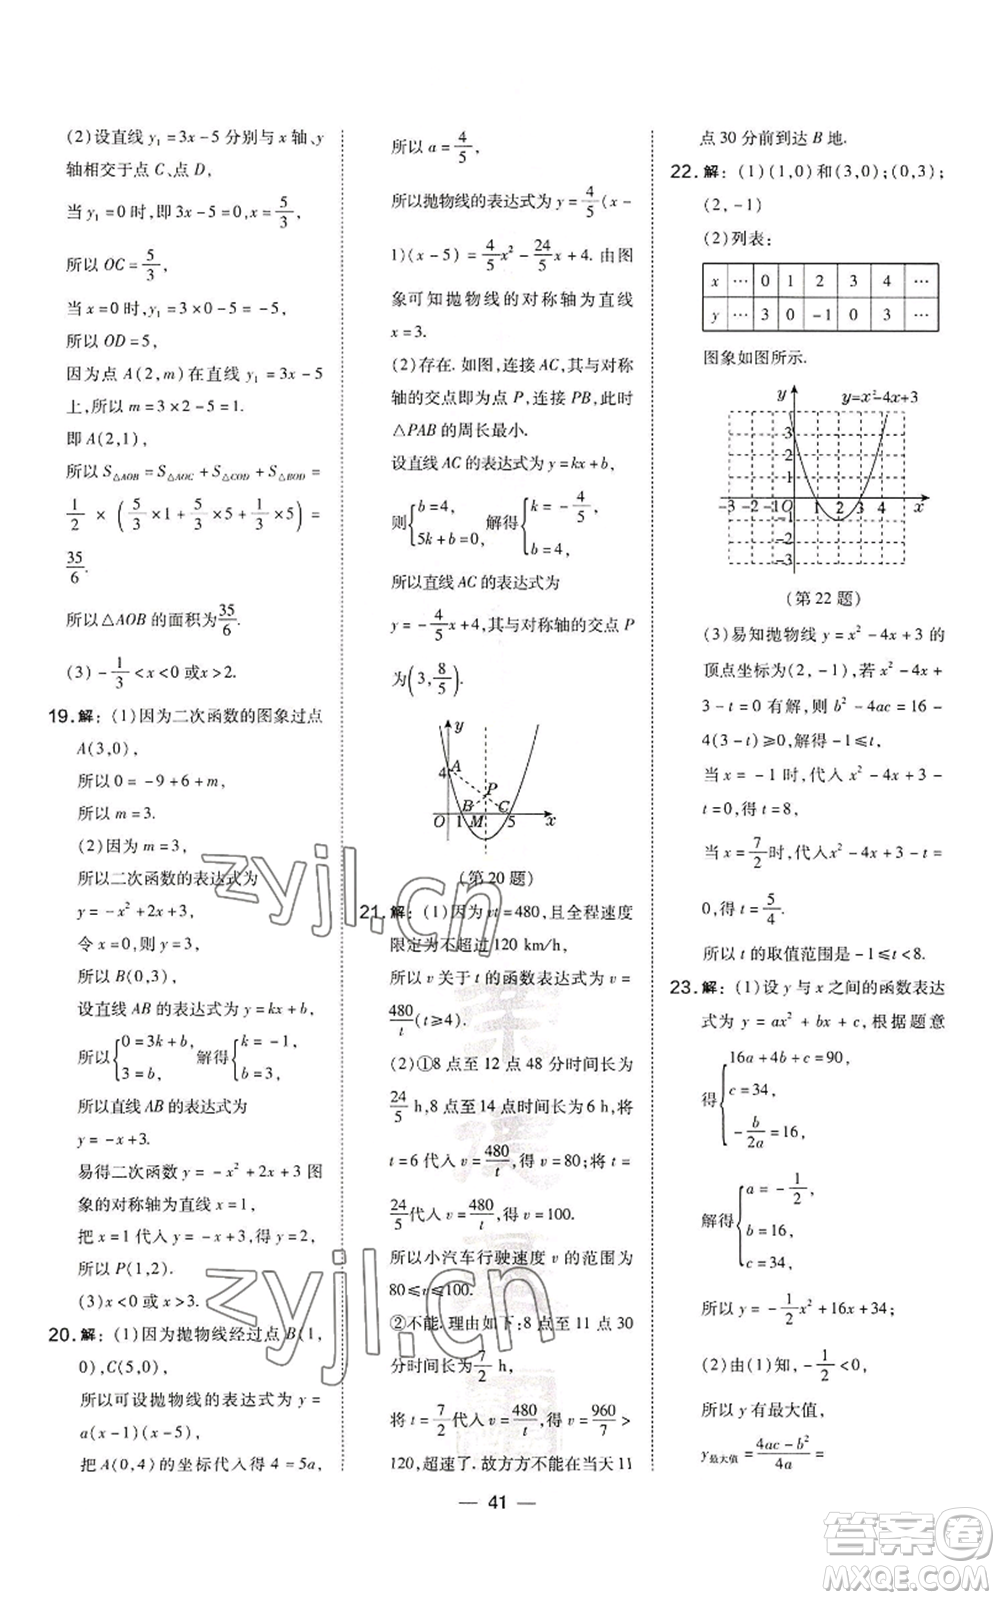 (2)设直线 y₁=3x-5 分别与 x 轴、y
轴相交于点 C、点 D,
当 y₁=0 时,即 3x-5=0,x=5/3,
所以 OC=5/3,
当 x=0 时,y₁=3×0-5=-5,
所以 OD=5,
因为点 A(2,m)在直线 y₁=3x-5
上,所以 m=3×2-5=1.
即 A(2,1),
所以 S△AOB=S△AOC+S△COD+S△BOD=
1/2×(5/3×1+5/3×5+1/3×5)=
35/6.
所以△AOB 的面积为 35/6.
(3)-1/3<x<0 或 x>2.
19.解:(1)因为二次函数的图象过点
A(3,0),
所以 0=-9+6+m,
所以 m=3.
(2)因为 m=3,
所以二次函数的表达式为
y=-x²+2x+3,
令 x=0,则 y=3,
所以 B(0,3),
设直线 AB 的表达式为 y=kx+b,
所以{0=3k+b, 3=b, 解得{k=-1, b=3,
所以直线 AB 的表达式为
y=-x+3.
易得二次函数 y=-x²+2x+3 图
象的对称轴为直线 x=1,
把 x=1 代入 y=-x+3,得 y=2,
所以 P(1,2).
(3)x<0 或 x>3.
20.解:(1)因为抛物线经过点 B(1,
0),C(5,0),
所以可设抛物线的表达式为 y=
a(x-1)(x-5),
把 A(0,4)的坐标代入得 4=5a,
所以 a=4/5,
所以抛物线的表达式为 y=4/5(x-
1)(x-5)=4/5x²-24/5x+4. 由图
象可知抛物线的对称轴为直线
x=3.
(2)存在. 如图,连接 AC,其与对称
轴的交点即为点 P,连接 PB,此时
△PAB 的周长最小.
设直线 AC 的表达式为 y=kx+b,
则{b=4, 5k+b=0, 解得{k=-4/5, b=4,
所以直线 AC 的表达式为
y=-4/5x+4,其与对称轴的交点 P
为(3,8/5).
y
4 A
P
B C
O 1 M 5 x
(第 20 题)
21.解:(1)因为 vt=480,且全程速度
限定为不超过 120 km/h,
所以 v 关于 t 的函数表达式为 v=
480/t(t≥4).
(2)①8 点至 12 点 48 分时间长为
24/5 h,8 点至 14 点时间长为 6 h,将
t=6 代入 v=480/t,得 v=80;将 t=
24/5代入 v=480/t,得 v=100.
所以小汽车行驶速度 v 的范围为
80≤v≤100.
②不能. 理由如下:8 点至 11 点 30
分时间长为 7/2 h,
将 t=7/2代入 v=480/t,得 v=960/7>
120,超速了. 故方方不能在当天 11
点 30 分前到达 B 地.
22.解:(1)(1,0)和(3,0);(0,3);
(2,-1)
(2)列表:
x … 0 1 2 3 4 …
y … 3 0 -1 0 3 …
图象如图所示.
y y=x²-4x+3
3
2
1
-3 -2 -1 O 1 2 3 4 x
-1
-2
-3
(第 22 题)
(3)易知抛物线 y=x²-4x+3 的
顶点坐标为(2,-1),若 x²-4x+
3-t=0 有解,则 b²-4ac=16-
4(3-t)≥0,解得-1≤t,
当 x=-1 时,代入 x²-4x+3-
t=0,得 t=8,
当 x=7/2时,代入 x²-4x+3-t=
0,得 t=5/4.
所以 t 的取值范围是-1≤t<8.
23.解:(1)设 y 与 x 之间的函数表达
式为 y=ax²+bx+c,根据题意
得{16a+4b+c=90, c=34, -b/2a=16,
解得{a=-1/2, b=16, c=34,
所以 y=-1/2x²+16x+34;
(2)由(1)知,-1/2<0,
所以 y 有最大值,
y最大值=(4ac-b²)/4a=
— 41 —
zyjl.cn
zyjl.cn
答案卷
MXQE.COM